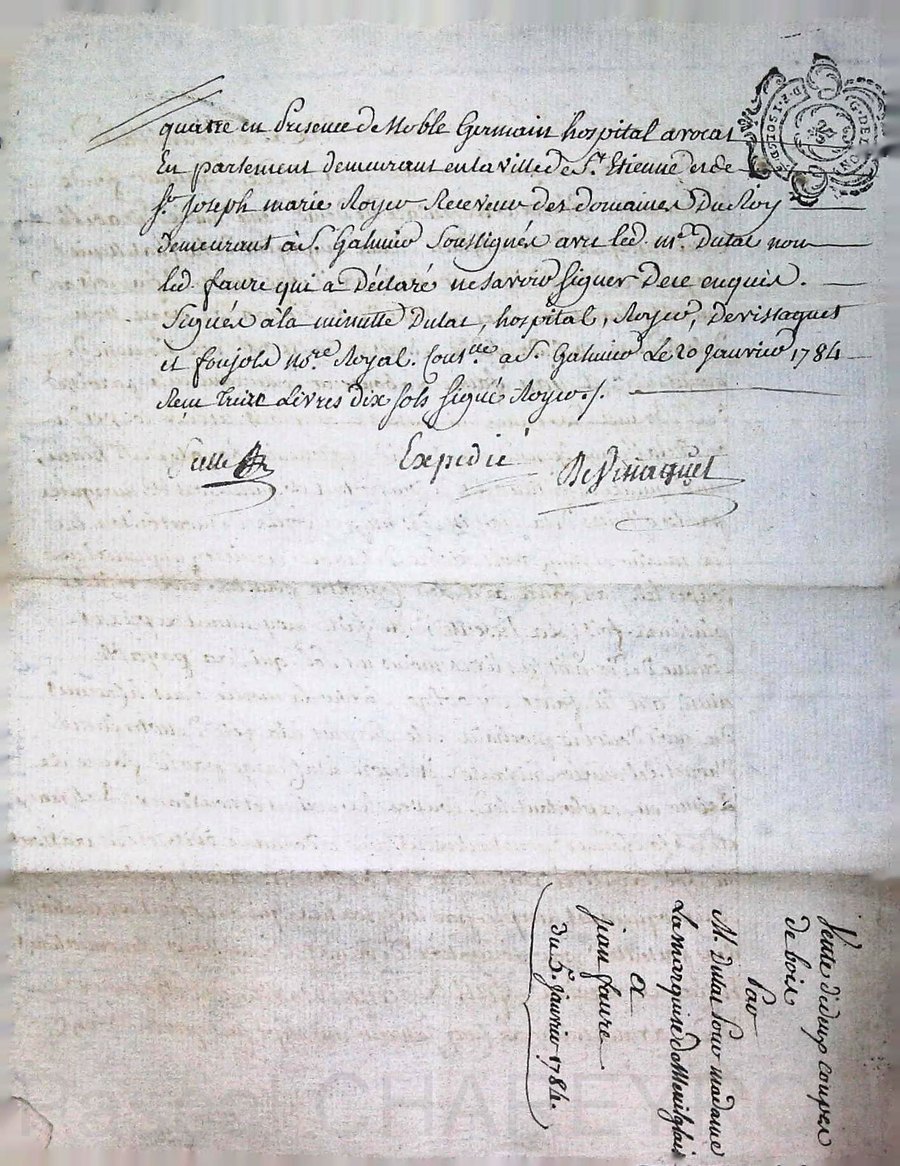 quatre en Présence de Noble Germain hospital avocat
En parlement demeurant en la ville de St. Etienne et de
Sr. Joseph marie Royer Receveur des domaines Du Roy
demeurant à St. Galmier Soussignés avec led. mr. Dulac non
led. faure qui a Déclaré ne savoir signer De ce enquis.
Signés à la minutte Dulac, hospital, Royer,
et no.re Royal. Con.lle a St. Galmier Le 20 Janvier 1784
Reçu treize Livres dix sols signé Royer ./.
Scellé
Expedié
G. DE L
Vente de coupes
de bois
Par
M. dulac Pour madame
La marquise de
a
jean faure
du 5e. janvier 1784.
CHALEY